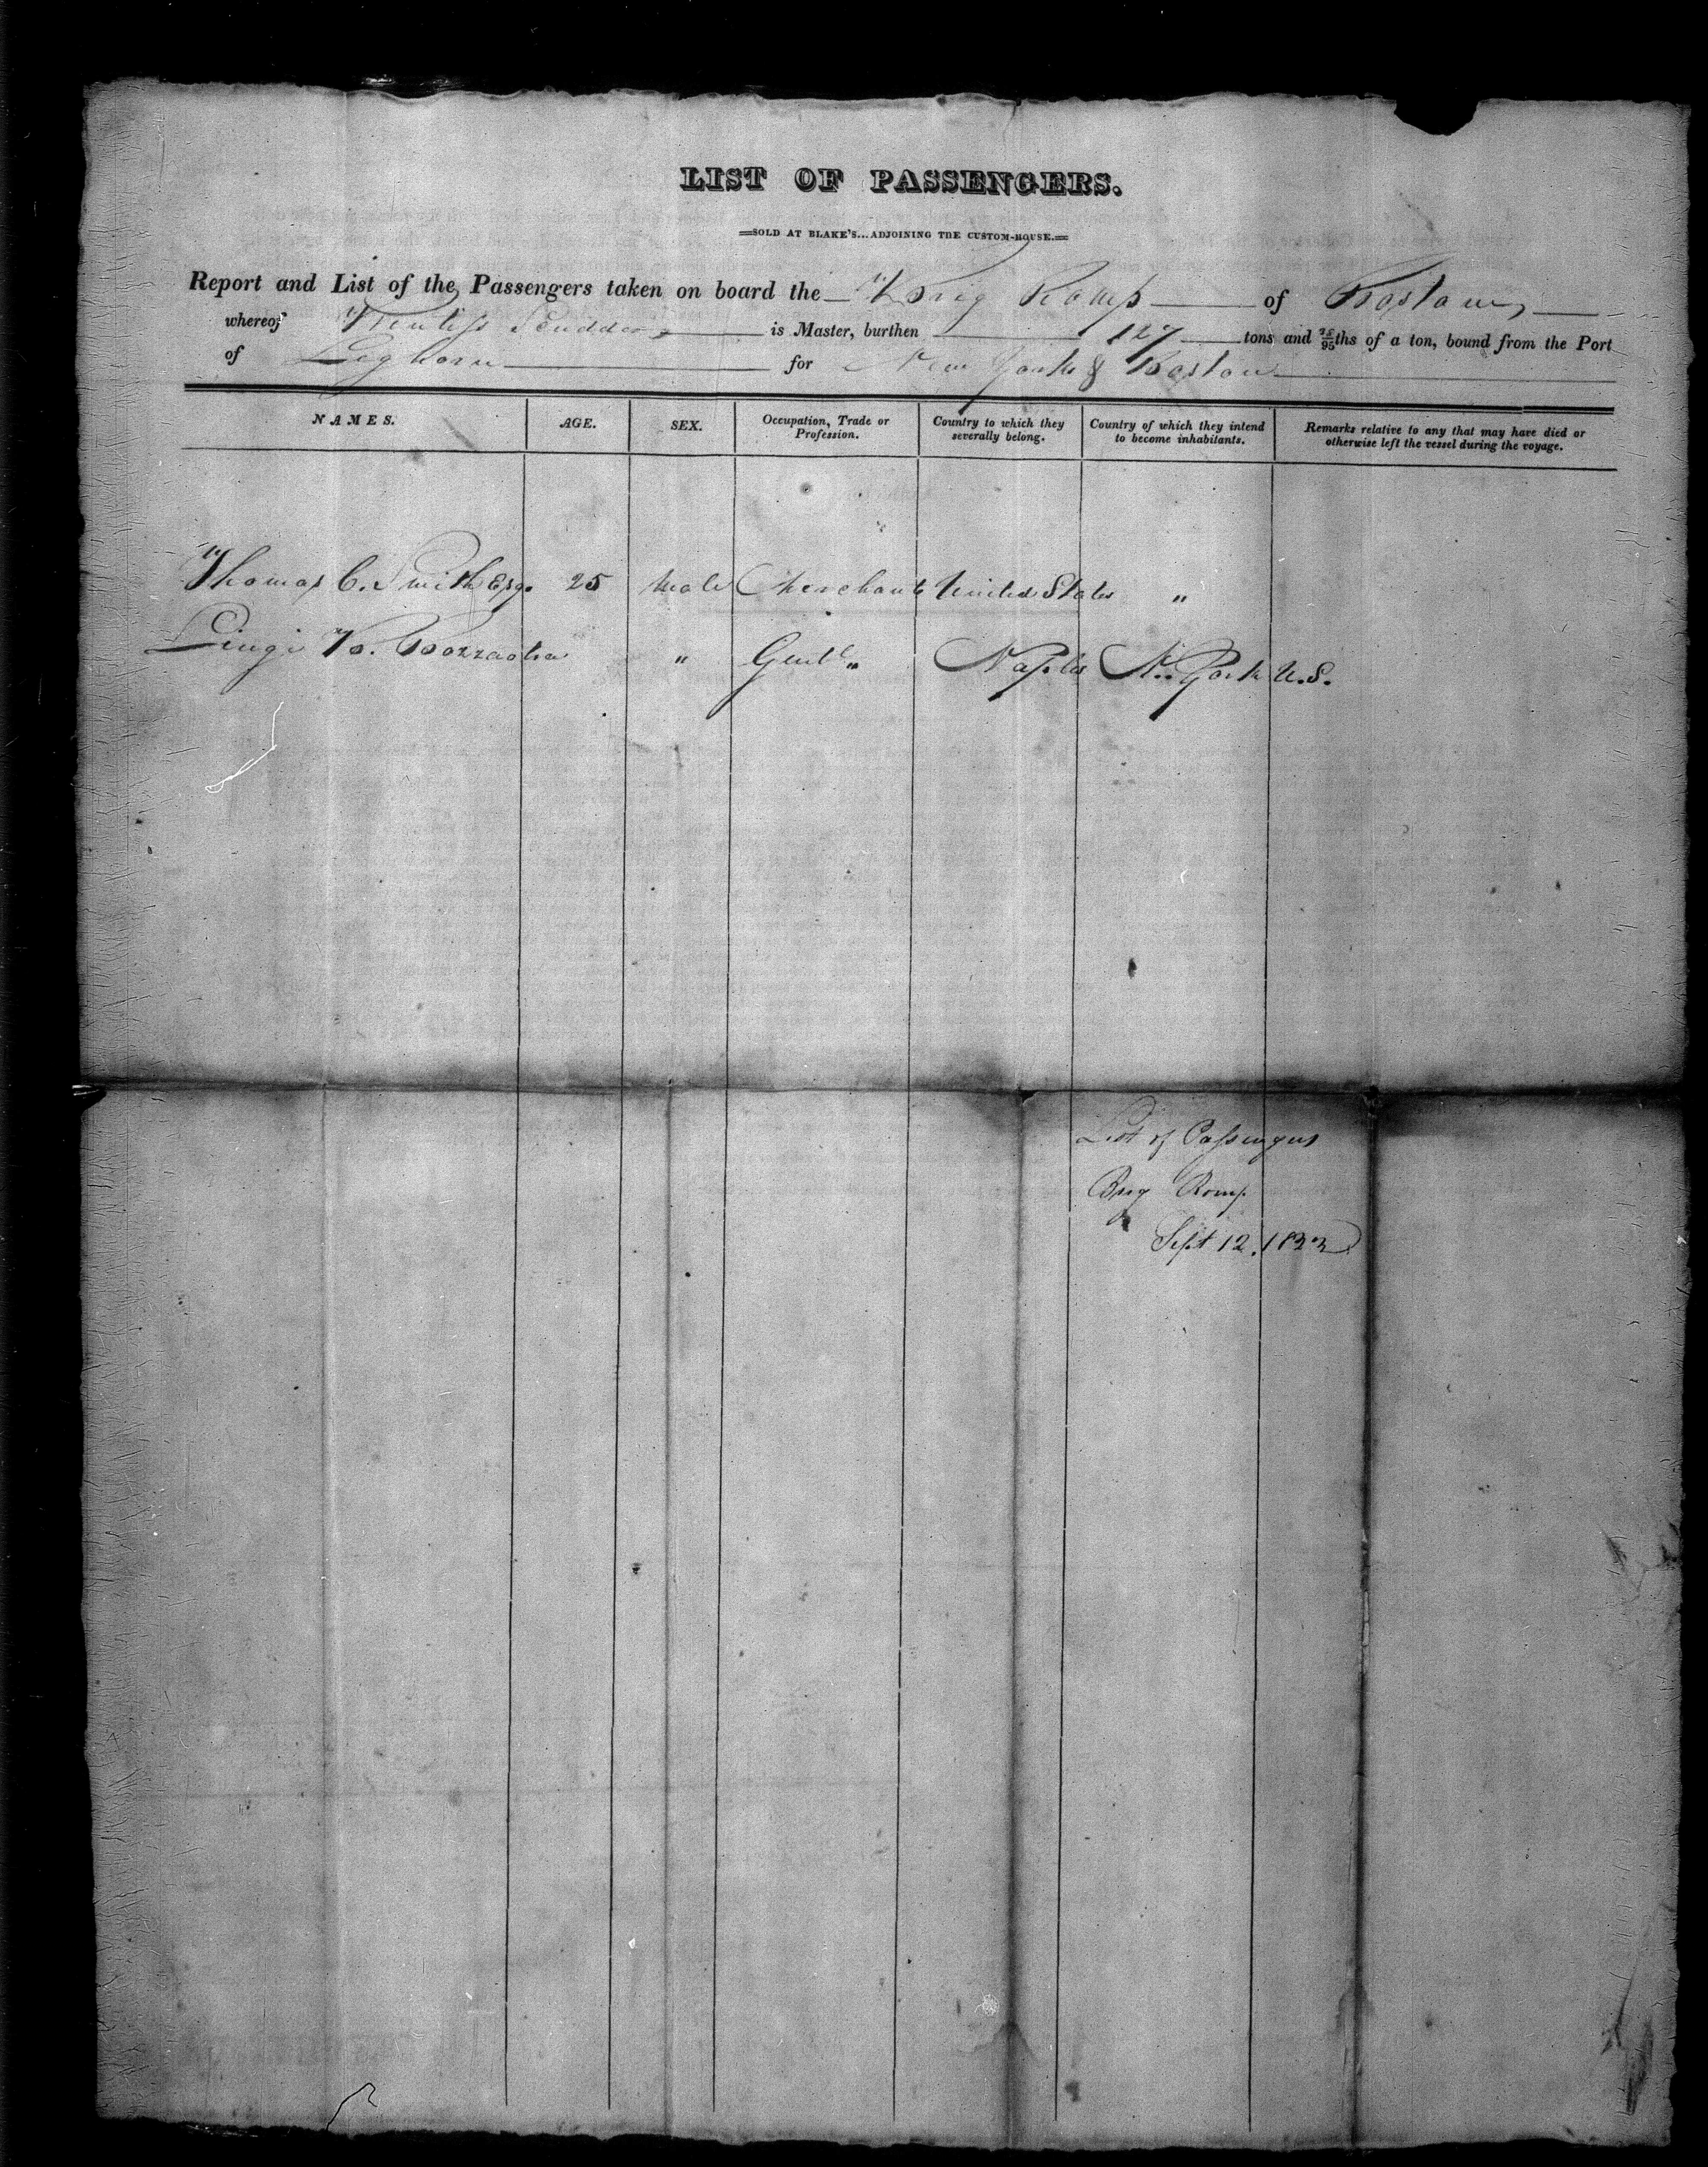 LIST OF PASSENGERS.
SOLD AT BLAKE'S...ADJOINING THE CUSTOM-HOUSE.
Report and List of the Passengers taken on board the Brig Romp of Boston,
whereof Prentiss Scudder is Master, burthen 127 tons and 75/95ths of a ton, bound from the Port
of Leghorn for New York & Boston
NAMES. AGE. SEX. Occupation, Trade or Profession. Country to which they severally belong. Country of which they intend to become inhabitants. Remarks relative to any that may have died or otherwise left the vessel during the voyage.
Thomas C. Smith Esq. 25 Male Merchant United States "
Luigi B. " Gentl " Naples N. York U.S.
List of Passengers
Brig Romp
Sept 12. 1833